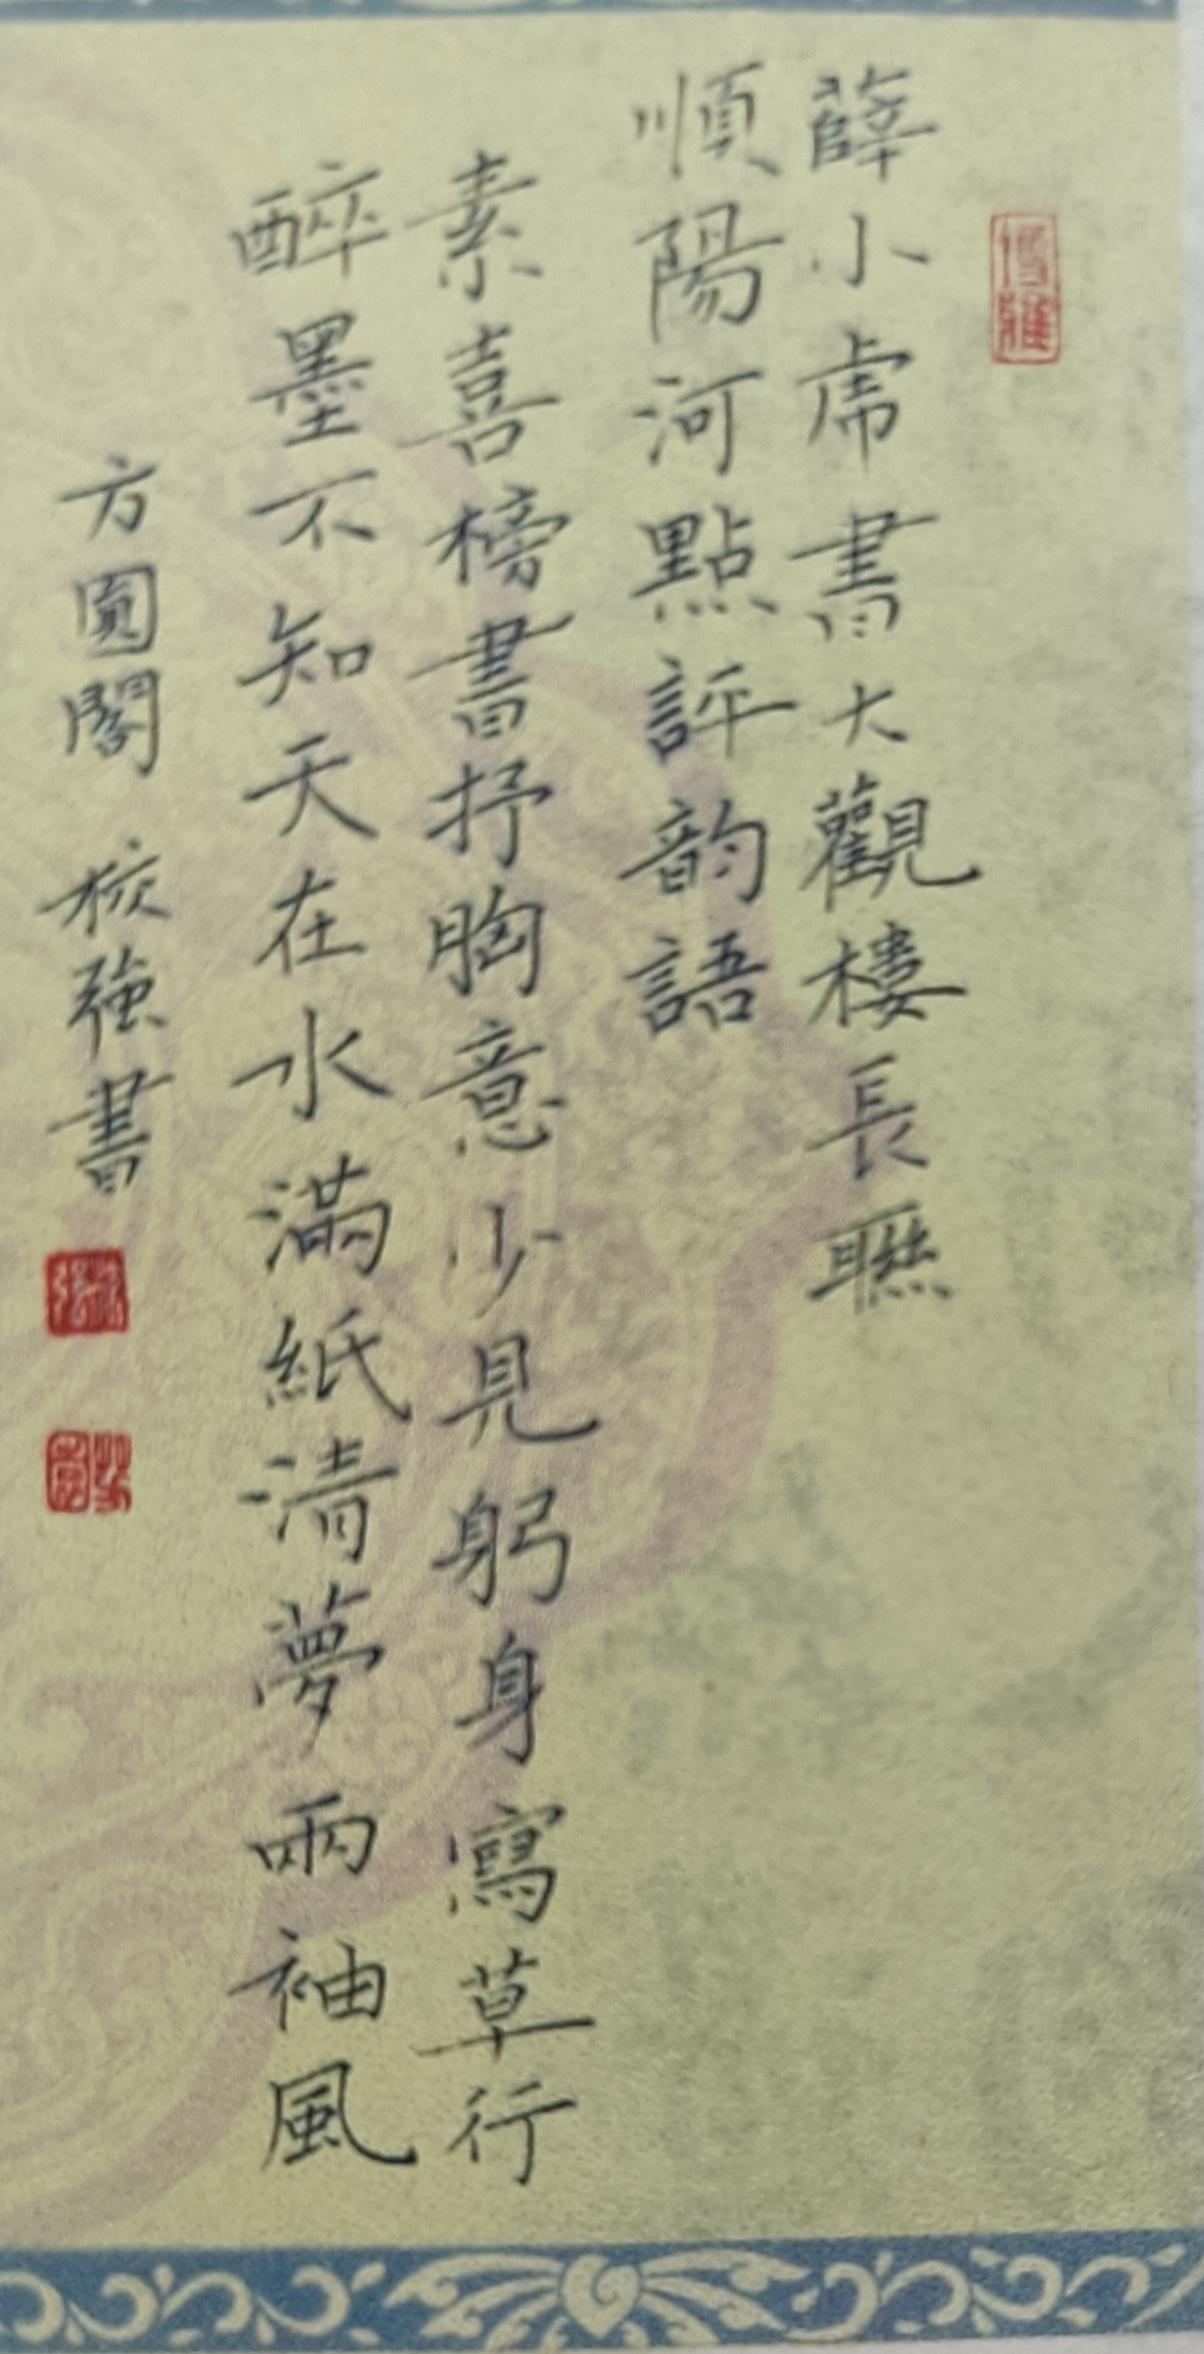 薛小虎書大觀樓長聯
順陽河點評韵語
素喜榜書抒胸意少見躬身寫草行
醉墨不知天在水滿紙清夢兩袖風
方圓閣 校強書
博雅